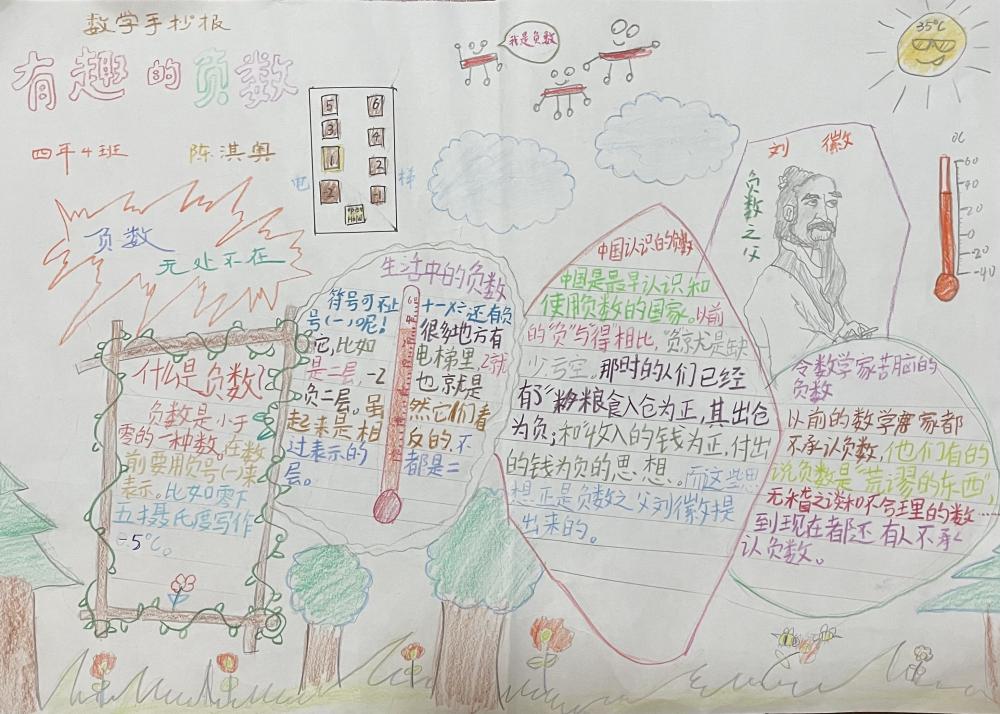 数学手抄报
有趣的负数
四年4班 陈淇奥
负数
无处不在
电梯
5 6
3 4
1 2
-2 -1
我是负数
35℃
什么是负数?
负数是小于
零的一种数。在数
前要用负号(-)来
表示。比如零下
五摄氏度写作
-5℃。
生活中的负数
符号可 十
号(-)呢! 还有负
很多地方有
比如 电梯里,
是二层,-2 也就是
负二层。虽 然它们看
起来是相 反的,不
过表示的 都是二
层。
中国认识的负数
中国是最早认识和
使用负数的国家。以前
的“负”与“得”相比,“负”就是缺
少、亏空,那时的人们已经
有“粮食入仓为正,其出仓
为负;和“收入的钱为正,付出
的钱为负的思想。而这些思
想正是负数之父刘徽提
出来的。
刘徽
负数之父
℃
60
40
20
0
-20
-40
令数学家苦恼的
负数
以前的数学家都
不承认负数,他们有的
说负数是“荒谬的东西”,
无稽之谈和不合理的数……
到现在都还有人不承
认负数。